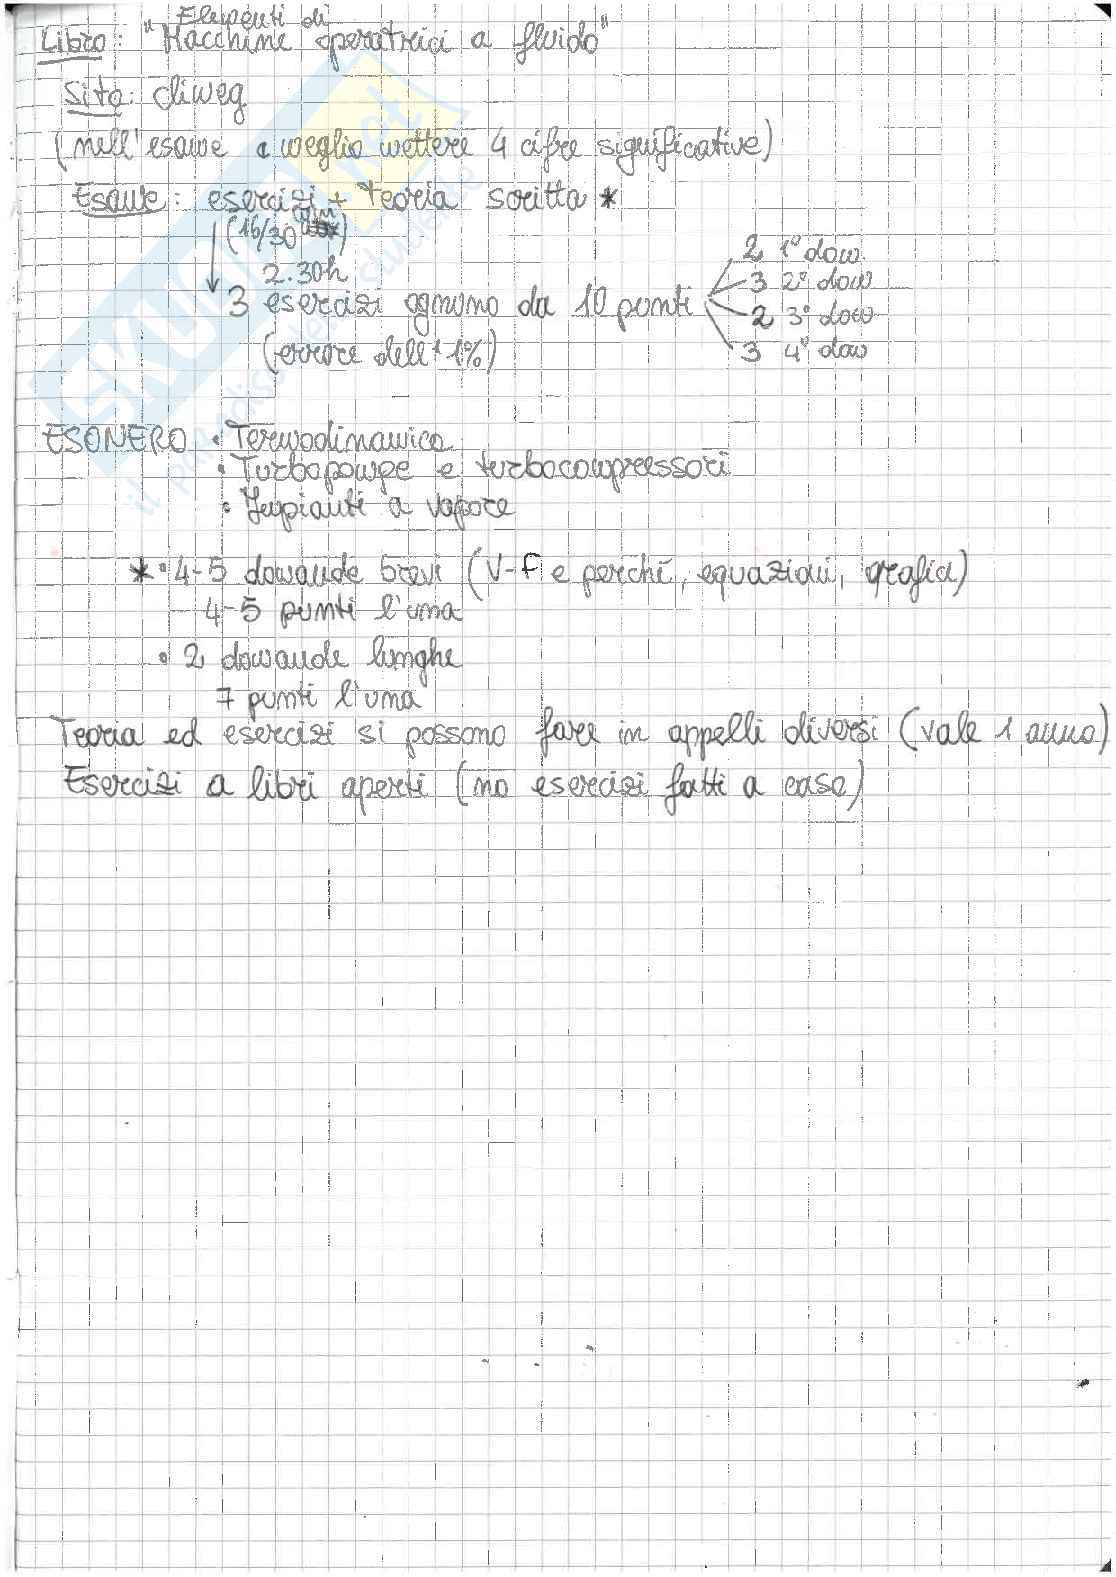 Elementi di
Libro: "Macchine operatrici a fluido"
Sito: diweg
(nell'esame è meglio mettere 4 cifre significative)
Esame: esercizi + Teoria scritta *
(16/30 min)
2.30h
3 esercizi ognuno da 10 punti
2 1° dom.
3 2° dom
2 3° dom
3 4° dom
(errore dell'1%)
ESONERO • Termodinamica
• Turbopompe e turbocompressori
• Impianti a vapore
* • 4-5 domande brevi (V-F e perché, equazioni, grafici)
4-5 punti l'una
• 2 domande lunghe
7 punti l'una
Teoria ed esercizi si possono fare in appelli diversi (vale 1 anno)
Esercizi a libri aperti (no esercizi fatti a casa)
SKUOLA.net
il paradiso dello studente